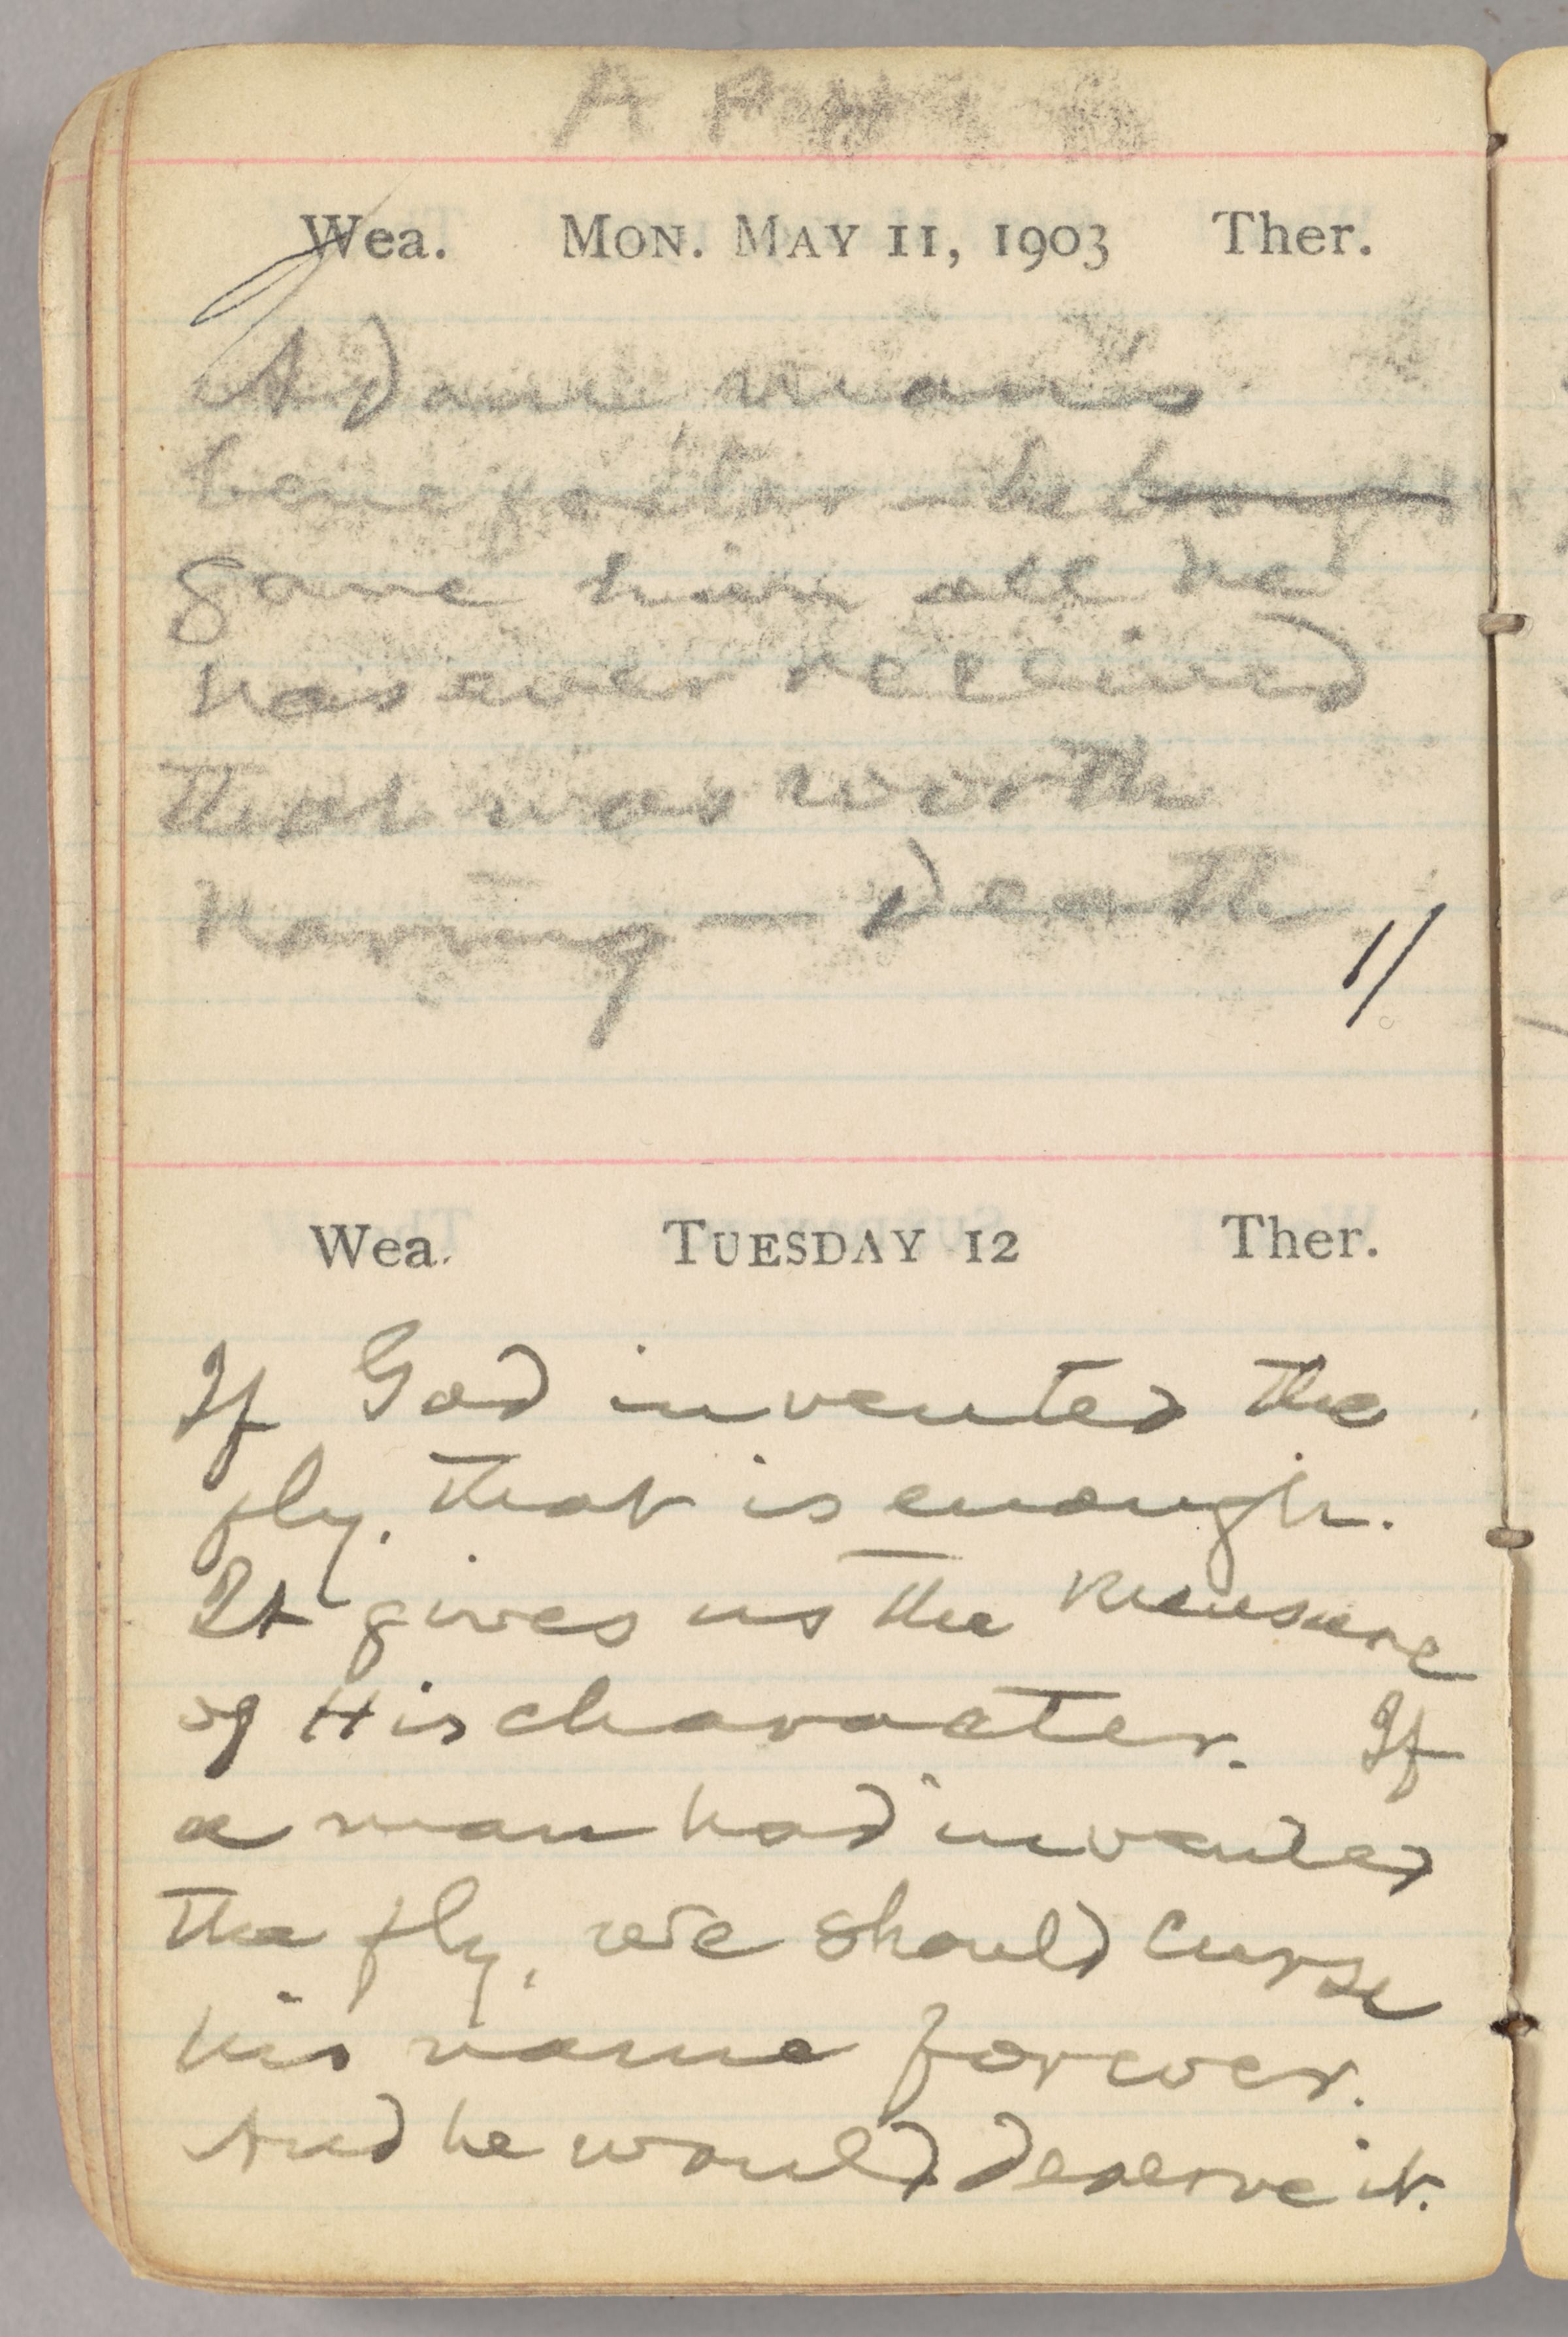 APRIL
Wea. MON. MAY 11, 1903 Ther.
Adam, man's
benefactor — he brought
gave him all he
has ever received
that was worth
having — Death
//
Wea. TUESDAY 12 Ther.
If God invented the
fly, that is enough.
It gives us the measure
of His character. If
a man had invented
the fly, we should curse
his name forever.
And he would deserve it.